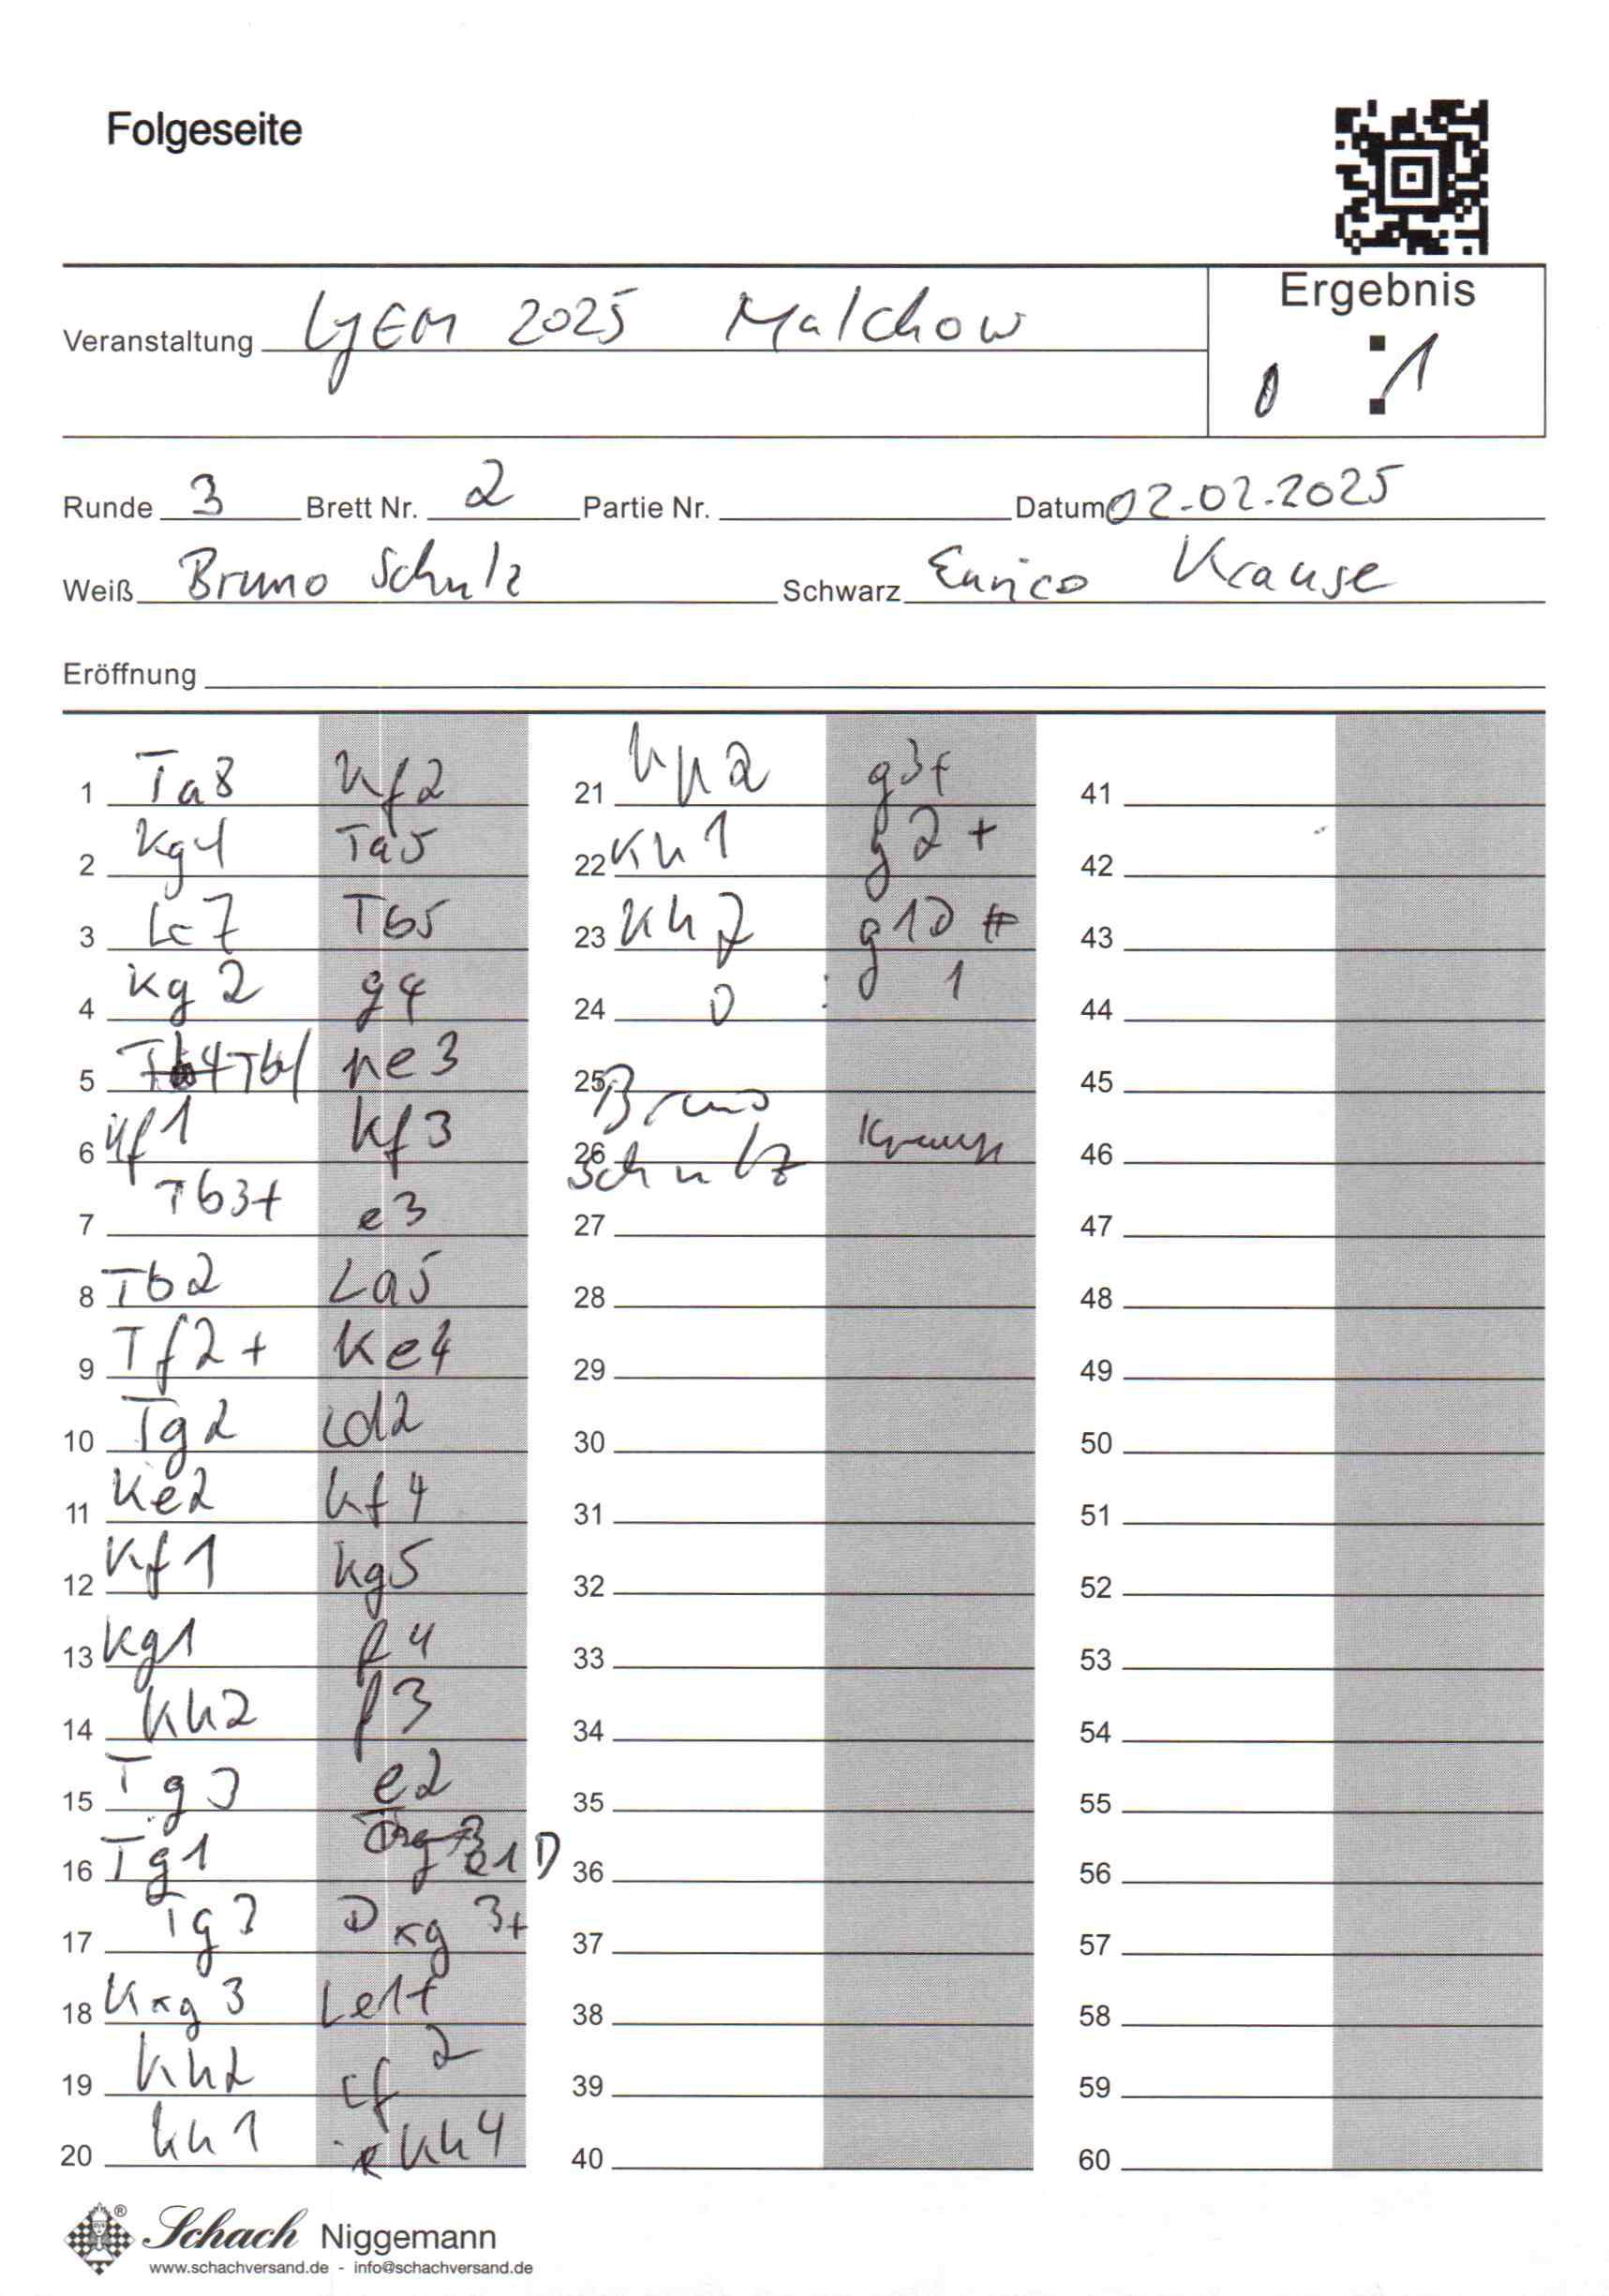 Folgeseite
Ergebnis
Veranstaltung LJEM 2025 Malchow
0 : 1
Runde 3 Brett Nr. 2 Partie Nr. Datum 02.02.2025
Weiß Bruno Schulz Schwarz Enrico Krause
Eröffnung
1 Ta8 Kf2
2 Kg4 Ta5
3 Lc7 Tb5
4 Kg2 g4
5 Tb4 Tb1 Ke3
6 Kf1 Kf3
7 Tb3+ e3
8 Tb2 La5
9 Tf2+ Ke4
10 Tg2 Ld2
11 Ke2 Kf4
12 Kf1 Kg5
13 Kg1 f4
14 Kh2 f3
15 Tg3 e2
16 Tg1 e1D
17 Tg3 Dxg3+
18 Kxg3 Le1+
19 Kh2 Lf2
20 Kh1 Kh4
21 Kh2 g3+
22 Kh1 g2+
23 Kh2 g1D#
24 0 : 1
25 Bruno
26 Schulz Krause
27
28
29
30
31
32
33
34
35
36
37
38
39
40
41
42
43
44
45
46
47
48
49
50
51
52
53
54
55
56
57
58
59
60
Schach Niggemann
www.schachversand.de - info@schachversand.de